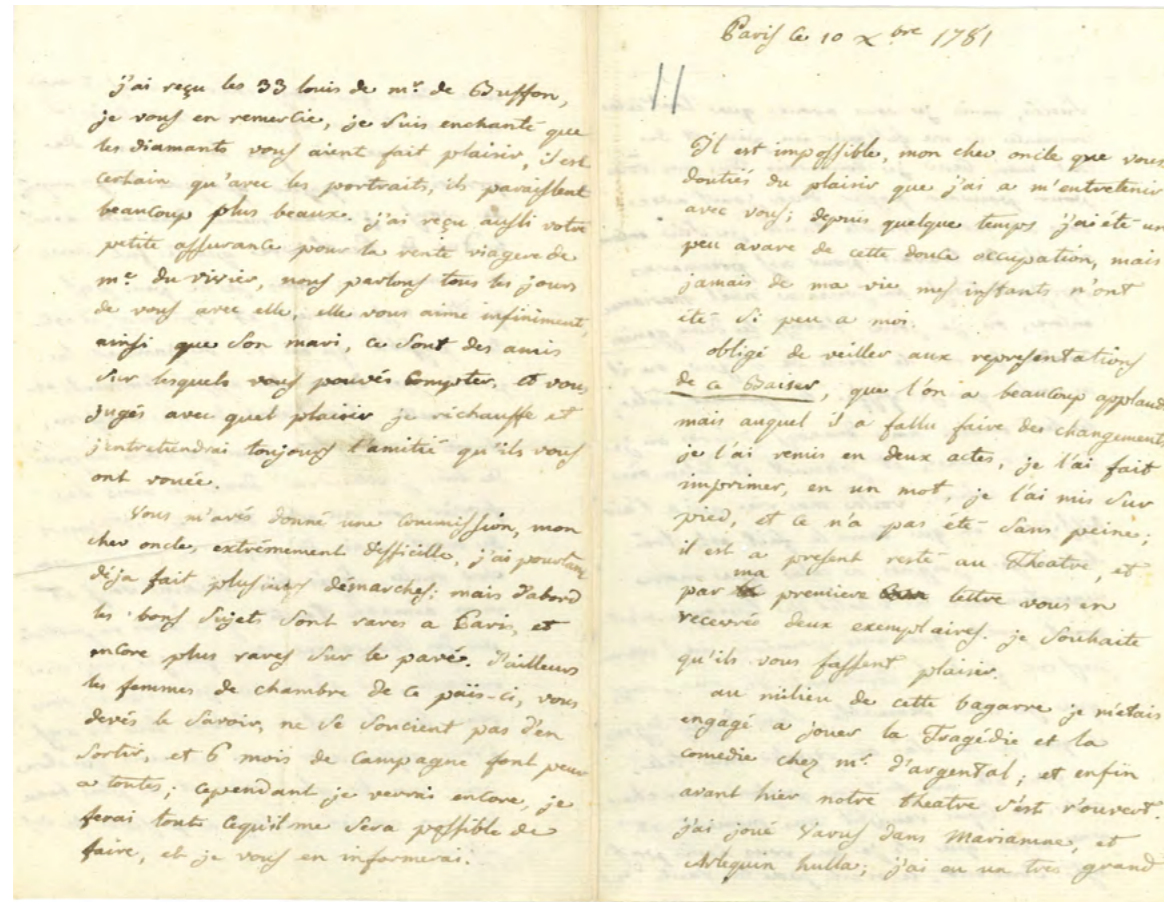 j'ai reçu les 33 louis de mr. de Buffon,
je vous en remercie, je suis enchanté que
les diamants vous aient fait plaisir, il est
certain qu'avec les portraits, ils paraissent
beaucoup plus beaux. j'ai reçu aussi votre
petite assurance pour la rente viagere de
me. du vivier, nous parlons tous les jours
de vous avec elle, elle vous aime infiniment,
ainsi que son mari, ce sont des amis
sur lesquels vous pouvés compter, et vous
jugés avec quel plaisir je réchauffe et
j'entretiendrai toujours l'amitié qu'ils vous
ont vouée.
Vous m'avés donné une commission, mon
cher oncle, extrêmement difficille, j'ai pourtant
déja fait plusieurs démarches; mais d'abord
les bons sujets sont rares a Paris, et
encore plus rares sur le pavé. d'ailleurs
les femmes de chambre de ce païs-ci, vous
devés le savoir, ne se soucient pas d'en
sortir, et 6 mois de campagne font peur
a toutes; cependant je verrai encore, je
ferai tout ce qu'il me sera possible de
faire, et je vous en informerai.
Paris ce 10 xbre 1781
11
Il est impossible, mon cher oncle que vous
doutiés du plaisir que j'ai a m'entretenir
avec vous; depuis quelque temps j'ai été un
peu avare de cette douce occupation, mais
jamais de ma vie mes instants n'ont
été si peu a moi.
obligé de veiller aux représentations
de ce Baiser, que l'on a beaucoup applaudi
mais auquel il a fallu faire des changements
je l'ai remis en deux actes, je l'ai fait
imprimer, en un mot, je l'ai mis sur
pied, et ce n'a pas été sans peine;
il est a present resté au Théatre, et
par ma premiere lettre vous en
recevrés deux exemplaires. je souhaite
qu'ils vous fassent plaisir.
au milieu de cette bagarre je m'étais
engagé a jouer la Tragédie et la
comedie chez mr. d'argental; et enfin
avant hier notre théatre s'est r'ouvert.
j'ai joué Varus dans Mariamne, et
Arlequin hulla; j'ai eu un tres grand